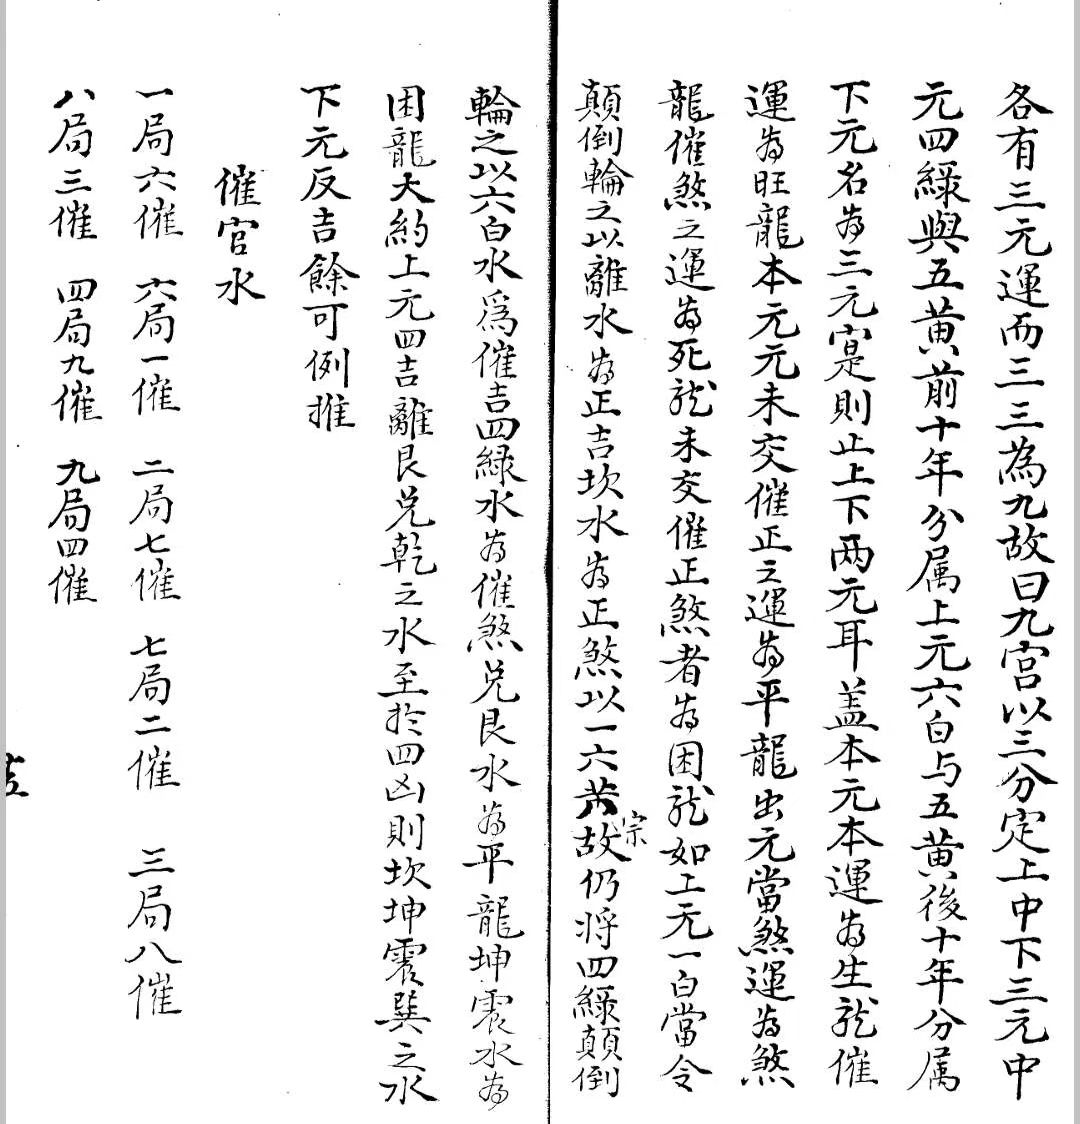 各有三元運而三三為九故曰九宮以三分定上中下三元中
元四綠與五黄前十年分属上元六白与五黄後十年分属
下元名為三元寔則止上下两元耳盖本元本運為生龙催
運為旺龍本元元未交催正之運為平龍出元當煞運為煞
龍催煞之運為死龙未交催正煞者為困龙如上元一白當令
顛倒輪之以離水為正吉坎水為正煞以一六共宗故仍将四綠顛倒
輪之以六白水為催吉四緑水為催煞兑艮水為平龍坤震水為
困龍大約上元四吉離艮兑乾之水至於四凶則坎坤震巽之水
下元反吉餘可例推
催官水
一局六催 六局一催 二局七催 七局二催 三局八催
八局三催 四局九催 九局四催